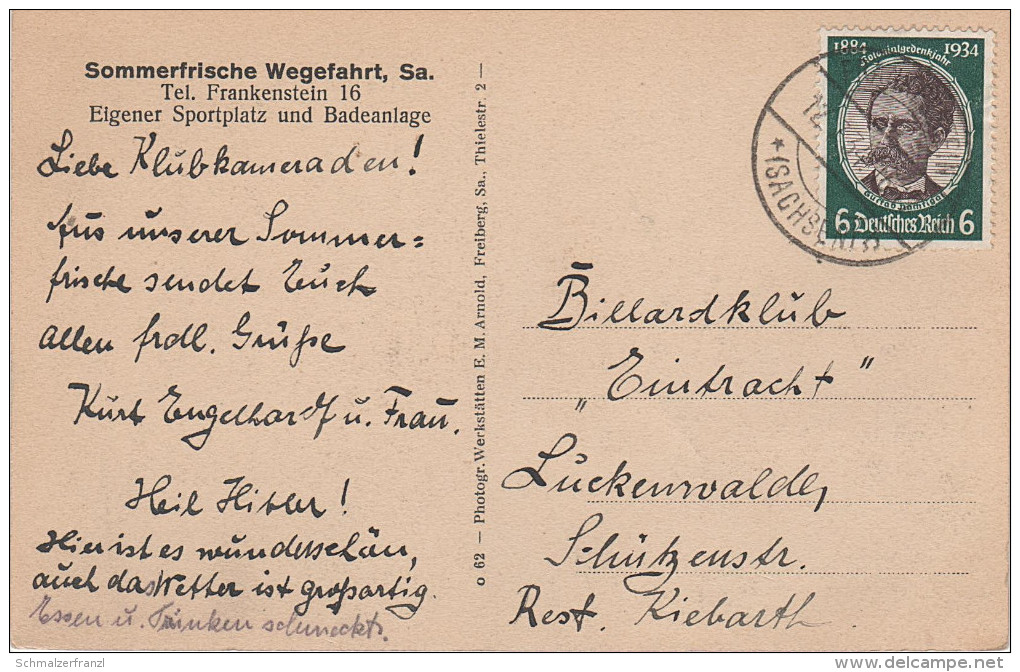 Sommerfrische Wegefahrt, Sa.
Tel. Frankenstein 16
Eigener Sportplatz und Badeanlage
Liebe Klubkameraden!
Aus unserer Sommer=
frische sendet Euch
allen frdl. Grüße
Kurt Engelhardt u. Frau.
Heil Hitler!
Hier ist es wunderschön,
auch das Wetter ist großartig.
Essen u. Trinken schmeckts.
o 62 — Photogr. Werkstätten E. M. Arnold, Freiberg, Sa., Thielestr. 2 —
1884 1934
Kolonialgedenkjahr
Gustav Nachtigal
6 Deutsches Reich 6
* (SACHSEN)
Billardklub
„Eintracht"
Luckenwalde,
Schützenstr.
Rest. Kiebarth
Schmalzerfranzl
delcampe.net